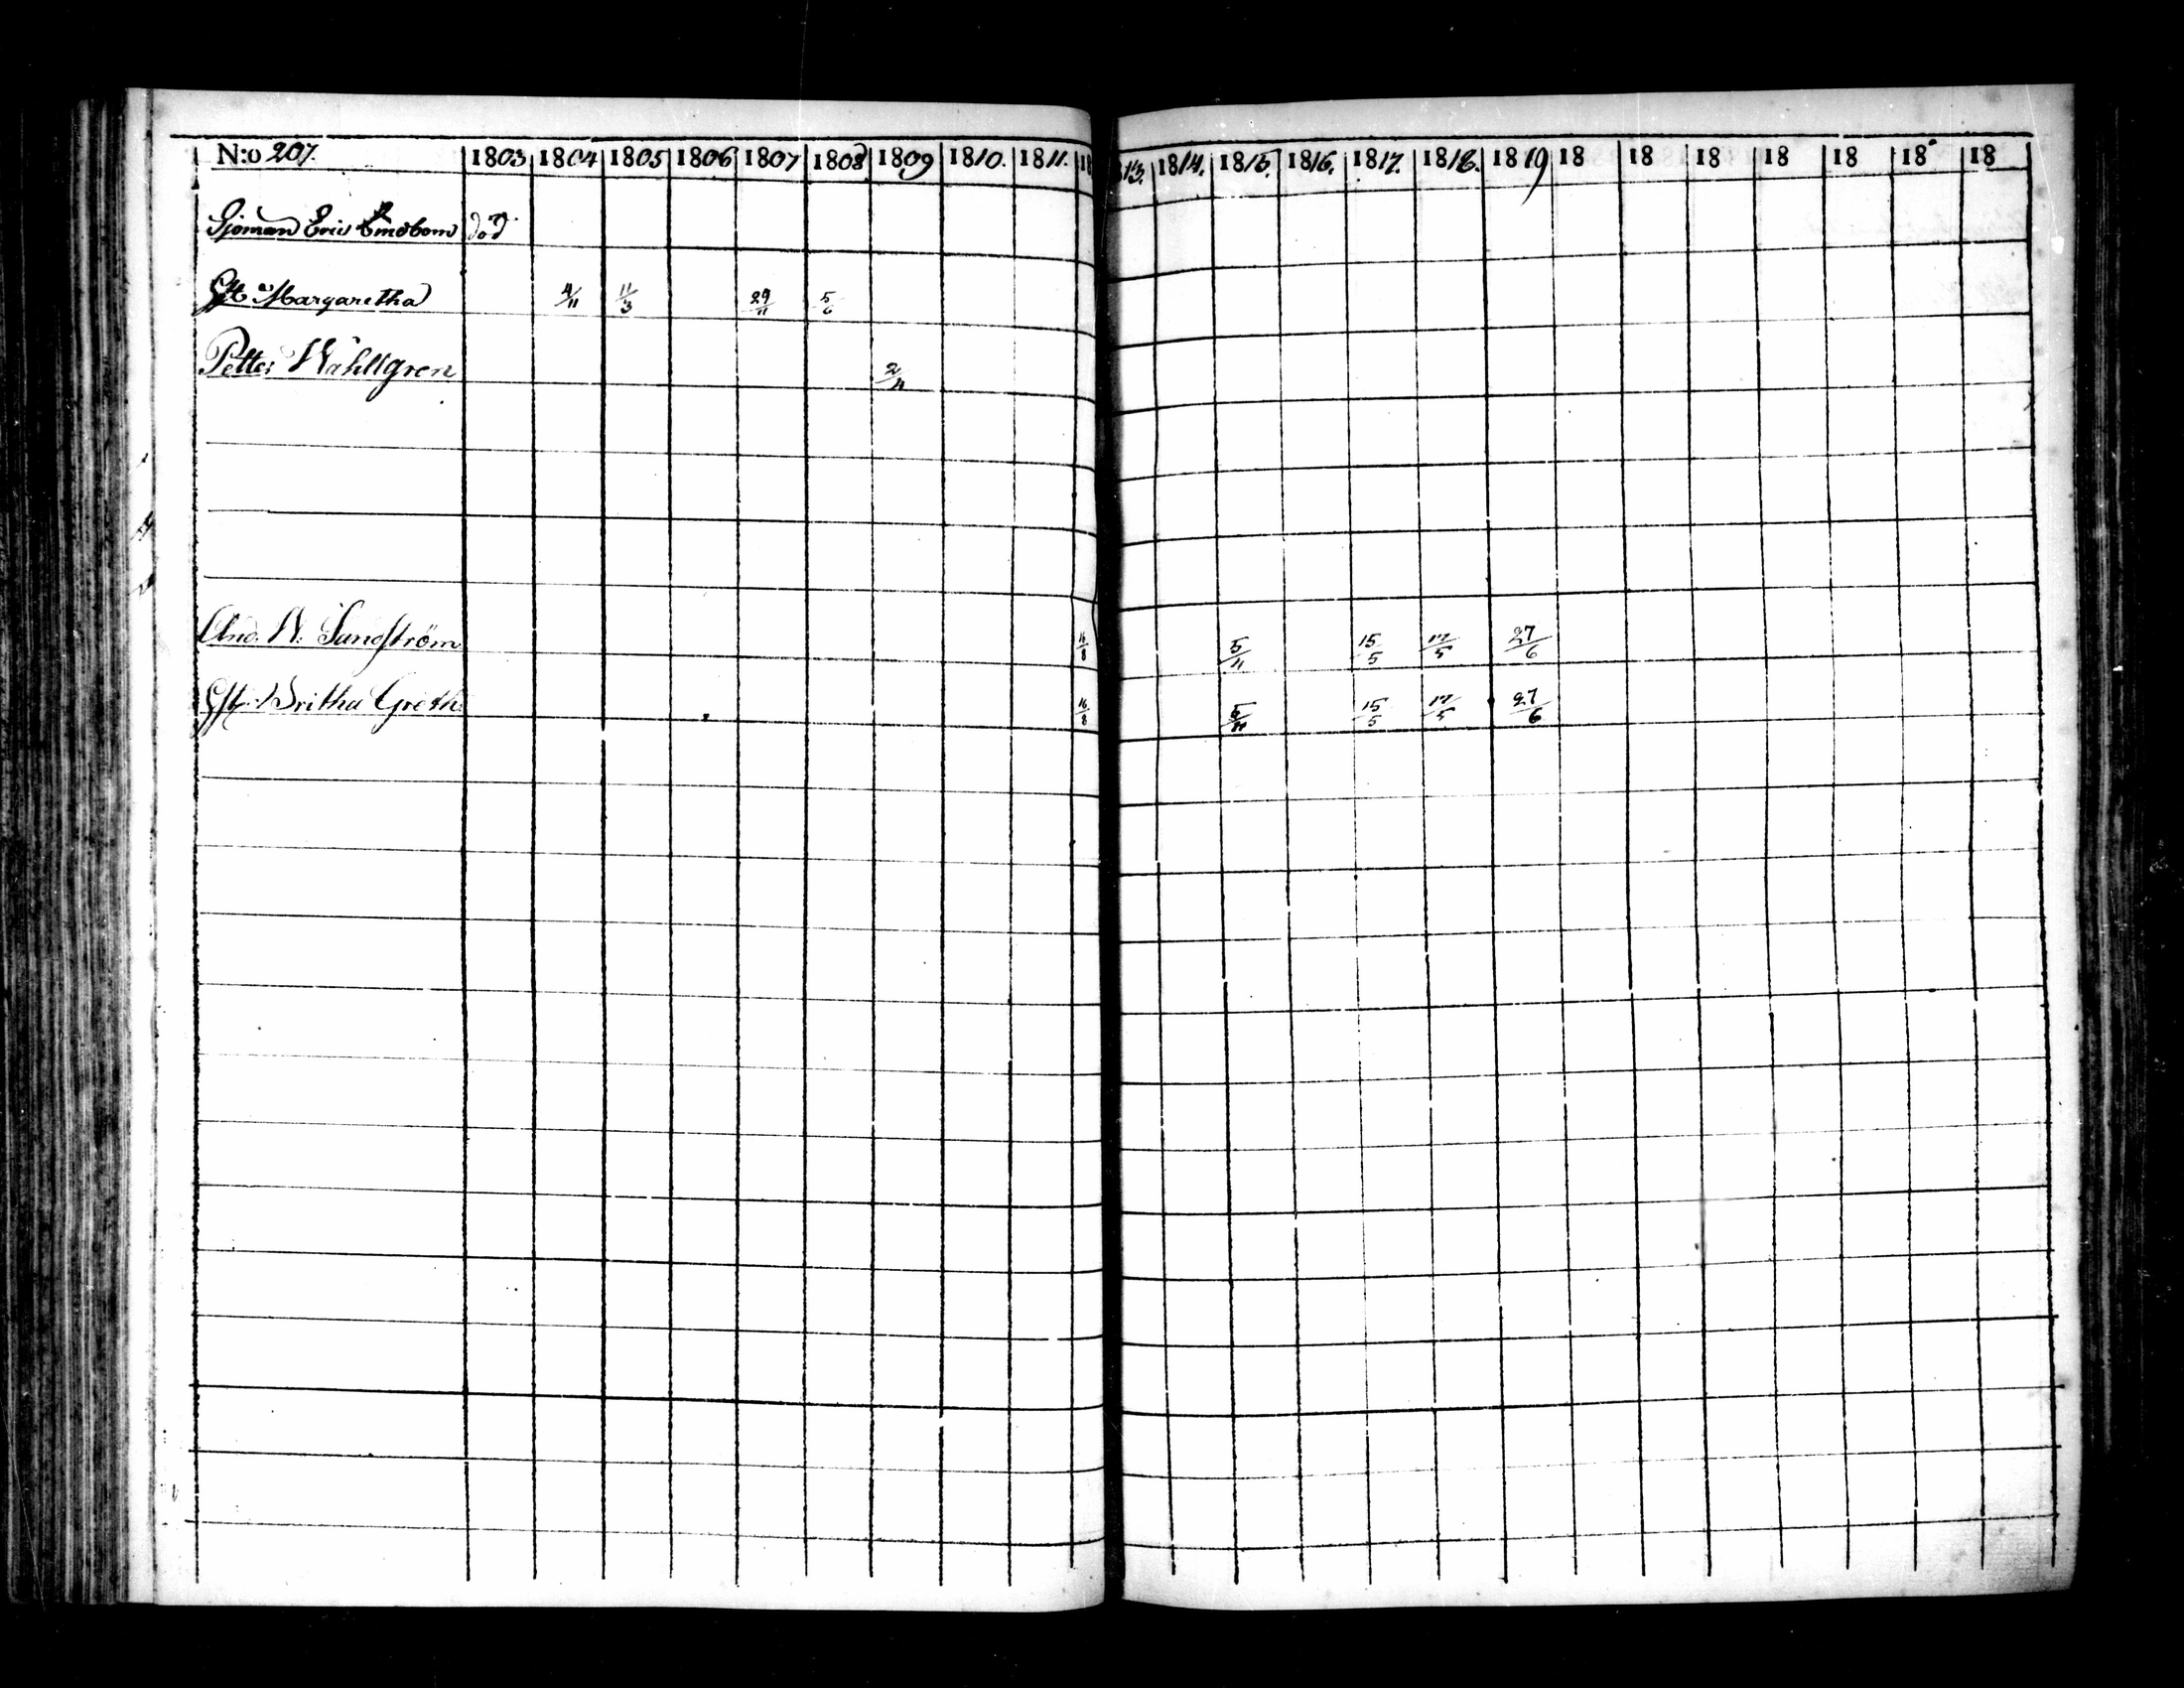 N:o 207. 1803 1804 1805 1806 1807 1808 1809 1810. 1811. 18 813. 1814. 1815. 1816. 1817. 1818. 1819 18 18 18 18 18 18 18
Sjöman Eric Lindbom död
Margaretha 4/11 11/3 29/11 5/6
Petter Wahllgren 2/11
And. N. Sundström 16/8 5/11 15/5 17/5 27/6
Hst. Britha Greth. 16/8 5/11 15/5 17/5 27/6